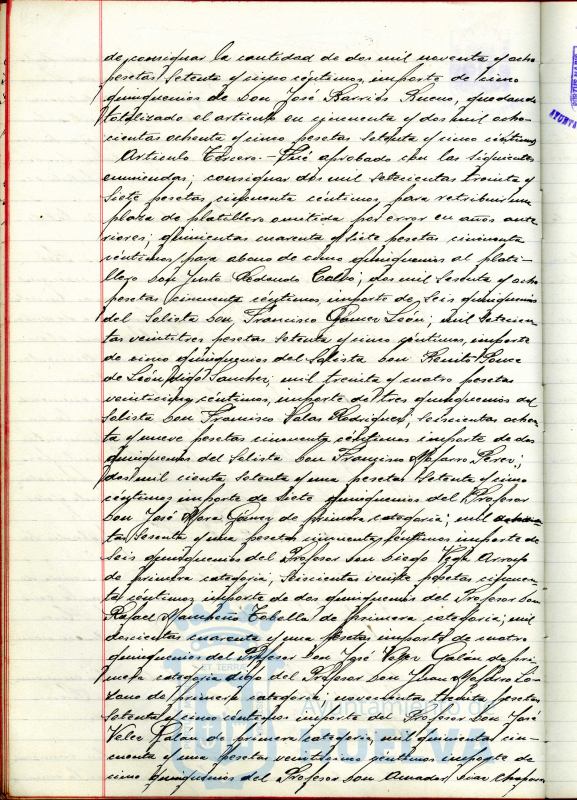 de consignar la cantidad de dos mil noventa y ocho
pesetas setenta y cinco céntimos, importe de cinco
quinquenios de Don José Barrios Bueno, quedando
totalizado el artículo en cincuenta y dos mil ocho-
cientas ochenta y cinco pesetas setenta y cinco céntimos
Artículo Tercero.- Fué aprobado con las siguientes
enmiendas; consignar dos mil setecientas treinta y
siete pesetas cincuenta céntimos para retribuir una
plaza de platillero omitida por error en años ante-
riores; quinientas cuarenta y siete pesetas cincuenta
céntimos para abono de cinco quinquenios al plati-
llero Don Justo Redondo Calvo; dos mil sesenta y ocho
pesetas cincuenta céntimos, importe de seis quinquenios
del Solista Don Francisco Gómez León; mil setecien-
tas veintitres pesetas setenta y cinco céntimos, importe
de cinco quinquenios del Solista Don Benito Ponce
de León digo Sánchez, mil treinta y cuatro pesetas
veinticinco céntimos, importe de tres quinquenios del
Solista Don Francisco Salas Rodríguez, seiscientas ochen-
ta y nueve pesetas cincuenta céntimos importe de dos
quinquenios del Solista Don Francisco Navarro Pérez;
dos mil ciento setenta y una pesetas setenta y cinco
céntimos importe de siete quinquenios del Profesor
Don José Mora Gómez de primera categoría; mil
tas sesenta y una pesetas cincuenta céntimos importe de
seis quinquenios del Profesor Don Diego Vega Arroyo
de primera categoría, seiscientas veinte pesetas cincuen-
ta céntimos importe de dos quinquenios del Profesor Don
Rafael de primera categoría; mil
doscientas cuarenta y una pesetas importe de cuatro
quinquenios del Profesor Don José Velez Galán de pri-
mera categoría digo del Profesor Don Juan Navarro Lo-
zano de primera categoría; novecientas treinta pesetas
setenta y cinco céntimos importe del Profesor Don José
Velez Galán de primera categoría, mil quinientas cin-
cuenta y una pesetas veinticinco céntimos importe de
cinco quinquenios del Profesor Don Amador Díaz
Ayuntamiento de
HUELVA